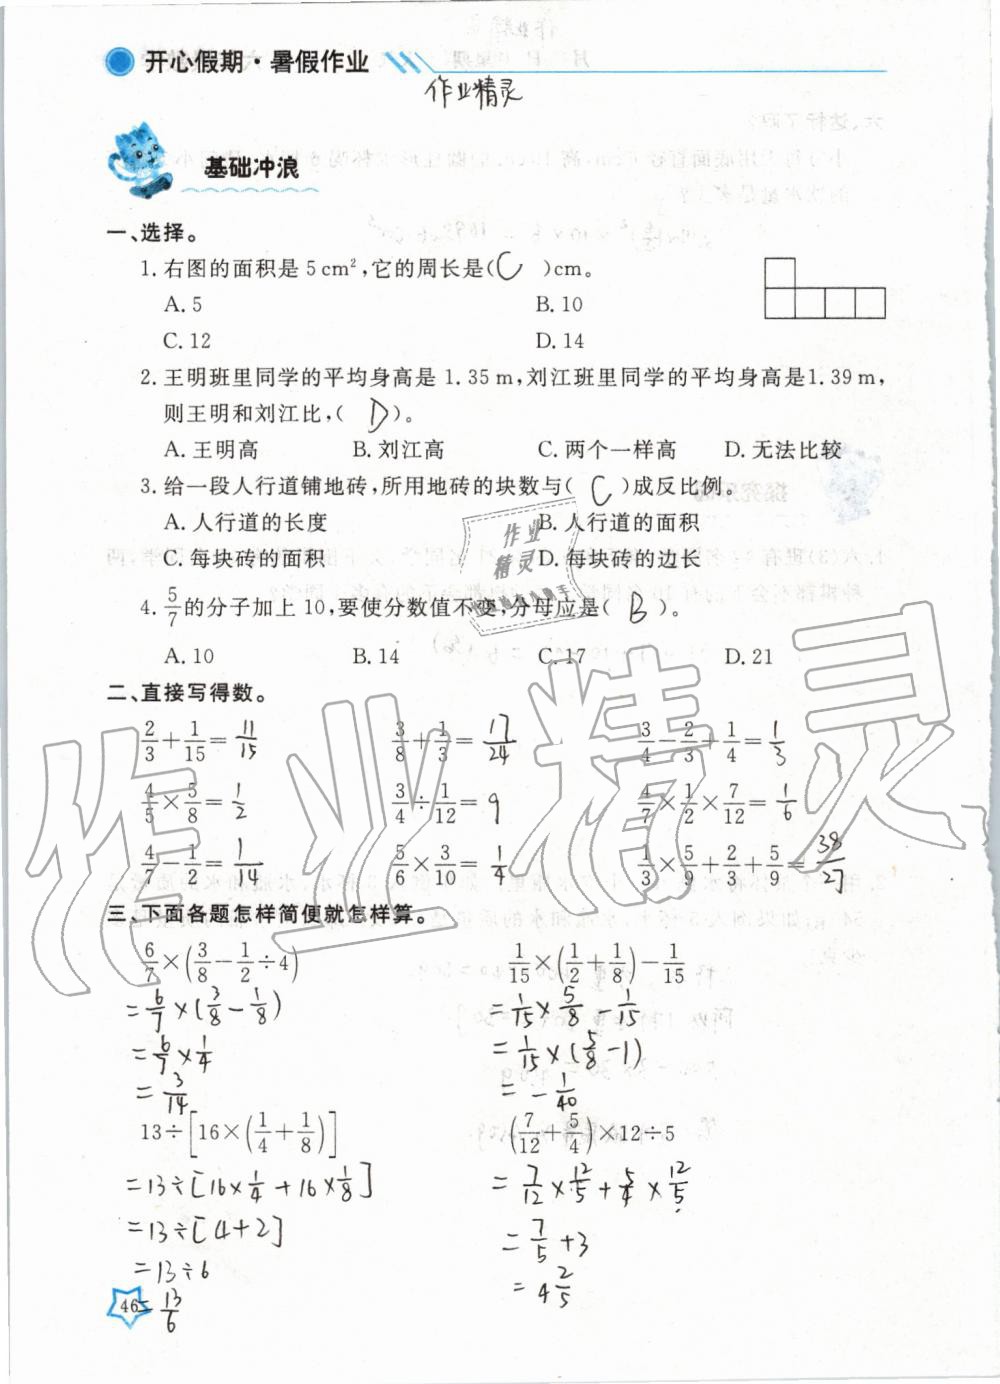 开心假期·暑假作业
作业精灵
基础冲浪
一、选择。
1. 右图的面积是 5 cm²,它的周长是( C )cm。
A. 5 B. 10
C. 12 D. 14
2. 王明班里同学的平均身高是 1.35 m,刘江班里同学的平均身高是1.39 m,
则王明和刘江比,( D )。
A. 王明高 B. 刘江高 C. 两个一样高 D. 无法比较
3. 给一段人行道铺地砖,所用地砖的块数与( C )成反比例。
A. 人行道的长度 B. 人行道的面积
C. 每块砖的面积 D. 每块砖的边长
4. 5/7的分子加上 10,要使分数值不变,分母应是( B )。
A. 10 B. 14 C. 17 D. 21
二、直接写得数。
2/3+1/15= 11/15 3/8+1/3= 17/24 3/4-2/3+1/4= 1/3
4/5×5/8= 1/2 3/4÷1/12= 9 4/7×1/2×7/12= 1/6
4/7-1/2= 1/14 5/6×3/10= 1/4 1/3×5/9+2/3+5/9= 38/27
三、下面各题怎样简便就怎样算。
6/7×(3/8-1/2÷4) 1/15×(1/2+1/8)-1/15
=6/7×(3/8-1/8) =1/15×5/8-1/15
=6/7×1/4 =1/15×(5/8-1)
=3/14 =-1/40
13÷[16×(1/4+1/8)] (7/12+5/4)×12÷5
=13÷[16×1/4+16×1/8] =7/12×12/5+5/4×12/5
=13÷[4+2] =7/5+3
=13÷6 =4 2/5
=13/6
46
作业
精灵
作业精灵